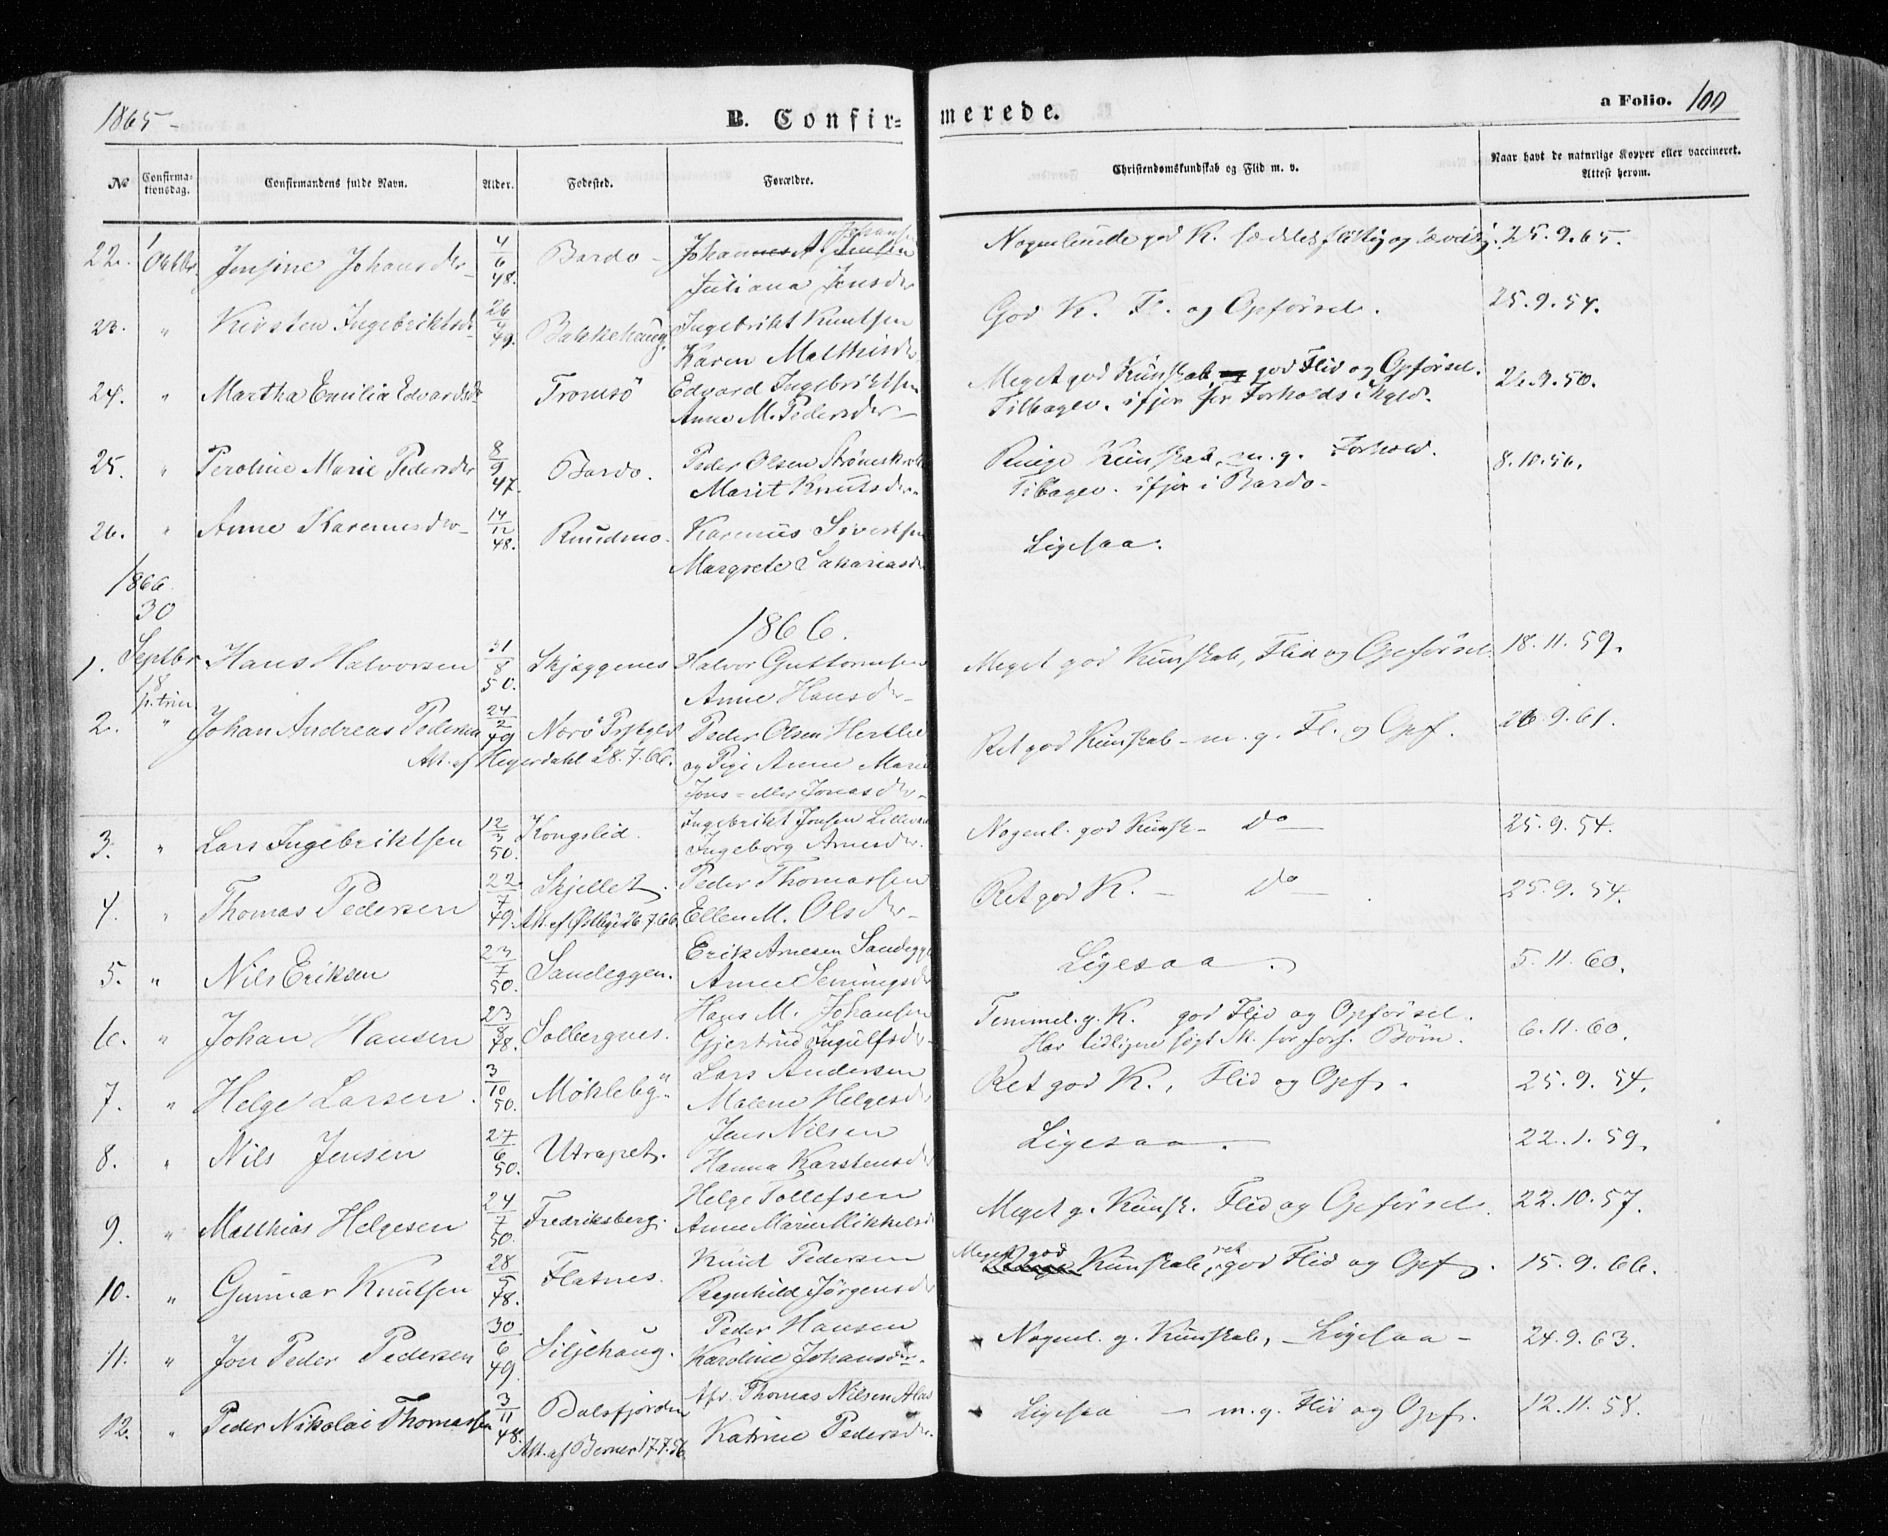 1865 -
B. Confir=merede.
a Folio. 100
No
Confirma-
tionsdag.
Confirmandens fulde Navn.
Alder.
Fødested.
Forældre.
Christendomskundskab og Flid m. v.
Naar havt de naturlige Kopper eller vaccineret.
Attest herom.
22. 1 Oktbr Jensine Johansdr 4/6 48. Bardo -
Juliana Jensdr
Nogenlunde god K. særdeles flittig og 25.9.65.
23. " Kirsten Ingebriktsdr 26/4 49. Bakkehaug. Ingebrikt Knutsen
Karen Mathisdr
God K. Fl. og Opførsel. 25.9.54.
24. " Martha Emilia Edvardsdr Tromsö Edvard Ingebriktsen
Anne M. Pedersdr -
Meget god Kunskab, god Flid og Opførsel.
Tilbagev. ifjor for Forholds Skyld.
25. " Peroline Marie Pedersdr 8/9 47. Bardo. Peder Olsen
Marit Knutsdr.
Ringe Kunskab, m. g. Forhold. 8.10.56.
Tilbagev. ifjor i Bardo.
26. " Anne Karenusdr 14/12 48. Rundmo. Karenus Sivertsen
Margrete Sakariasdr
Ligesaa.
1866
30
1866.
1. Septbr Hans Halvorsen 31/8 50. Skjæggenes Halvor Guttormsen
18
p. trin.
Anne Hansdr -
Meget god Kunskab, Flid og Opførsel. 18.11.59.
2. " Johan Andreas Pedersen 24/2 49 Norö Prstgld Peder Olsen Hertlie
Att. af Hegerdahl 28.7.66. og Pige Anne Marie
Jons- eller Jonasdr -
Ret god Kunskab - m. g. Fl. og Opf. 26.9.61.
3. " Lars Ingebriktsen 12/3 50. Kongslid. Ingebrikt Jonsen
Ingeborg Arnesdr.
Nogenl. god Kunsk - Do 25.9.54.
4. " Thomas Pedersen 22/7 49. Skjellet. Peder Thomassen
Att. af Østbye 26.7.66. Ellen M. Olsdr -
Ret god K. - Do - 25.9.54.
5. " Nils Eriksen 23/7 50. Sandeggen. Erik Arnesen Sandegg
Anne Jenningsdr
Ligesaa. 5.11.60.
6. " Johan Hansen 23/8 48. Solbergnes. Hans M. Johansen
Gjertrud Ingulfsdr
Temmel. g. K. god Flid og Opførsel.
Har tidligere søgt Sk. for forh. Børn. 6.11.60.
7. " Helge Larsen. 3/10 50. Möklebÿ Lars Andersen
Malene Helgesdr
Ret god K., Flid og Opf. 25.9.54.
8. " Nils Jensen 27/6 50. Utrapet. Jens Nilsen
Hanna Karstensdr
Ligesaa. 22.1.59.
9. " Matthias Helgesen 24/7 50. Fredriksberg. Helge Tollefsen
Anne Marie Mikkelsdr
Meget g. Kunsk. Flid og Opførsel. 22.10.57.
10. " Gunnar Knutsen 28/5 48. Flatnes. Knut Pedersen
Regnhild Jörgensdr
Meget god Kunskab, ret god Flid og Opf. 15.9.66.
11. " Jon Peder Pedersen 30/6 49. Siljehaug. Peder Hansen
Karoline Johansdr.
Nogenl. g. Kunskab, - Ligesaa - 24.9.63.
12. " Peder Nikolai Thomassen 3/11 48. Balsfjorden Thomas Nilsen
Att. af Berner 17.7.56 Katrine Pedersdr.
Ligesaa - m. g. Flid og Opf. 12.11.58.